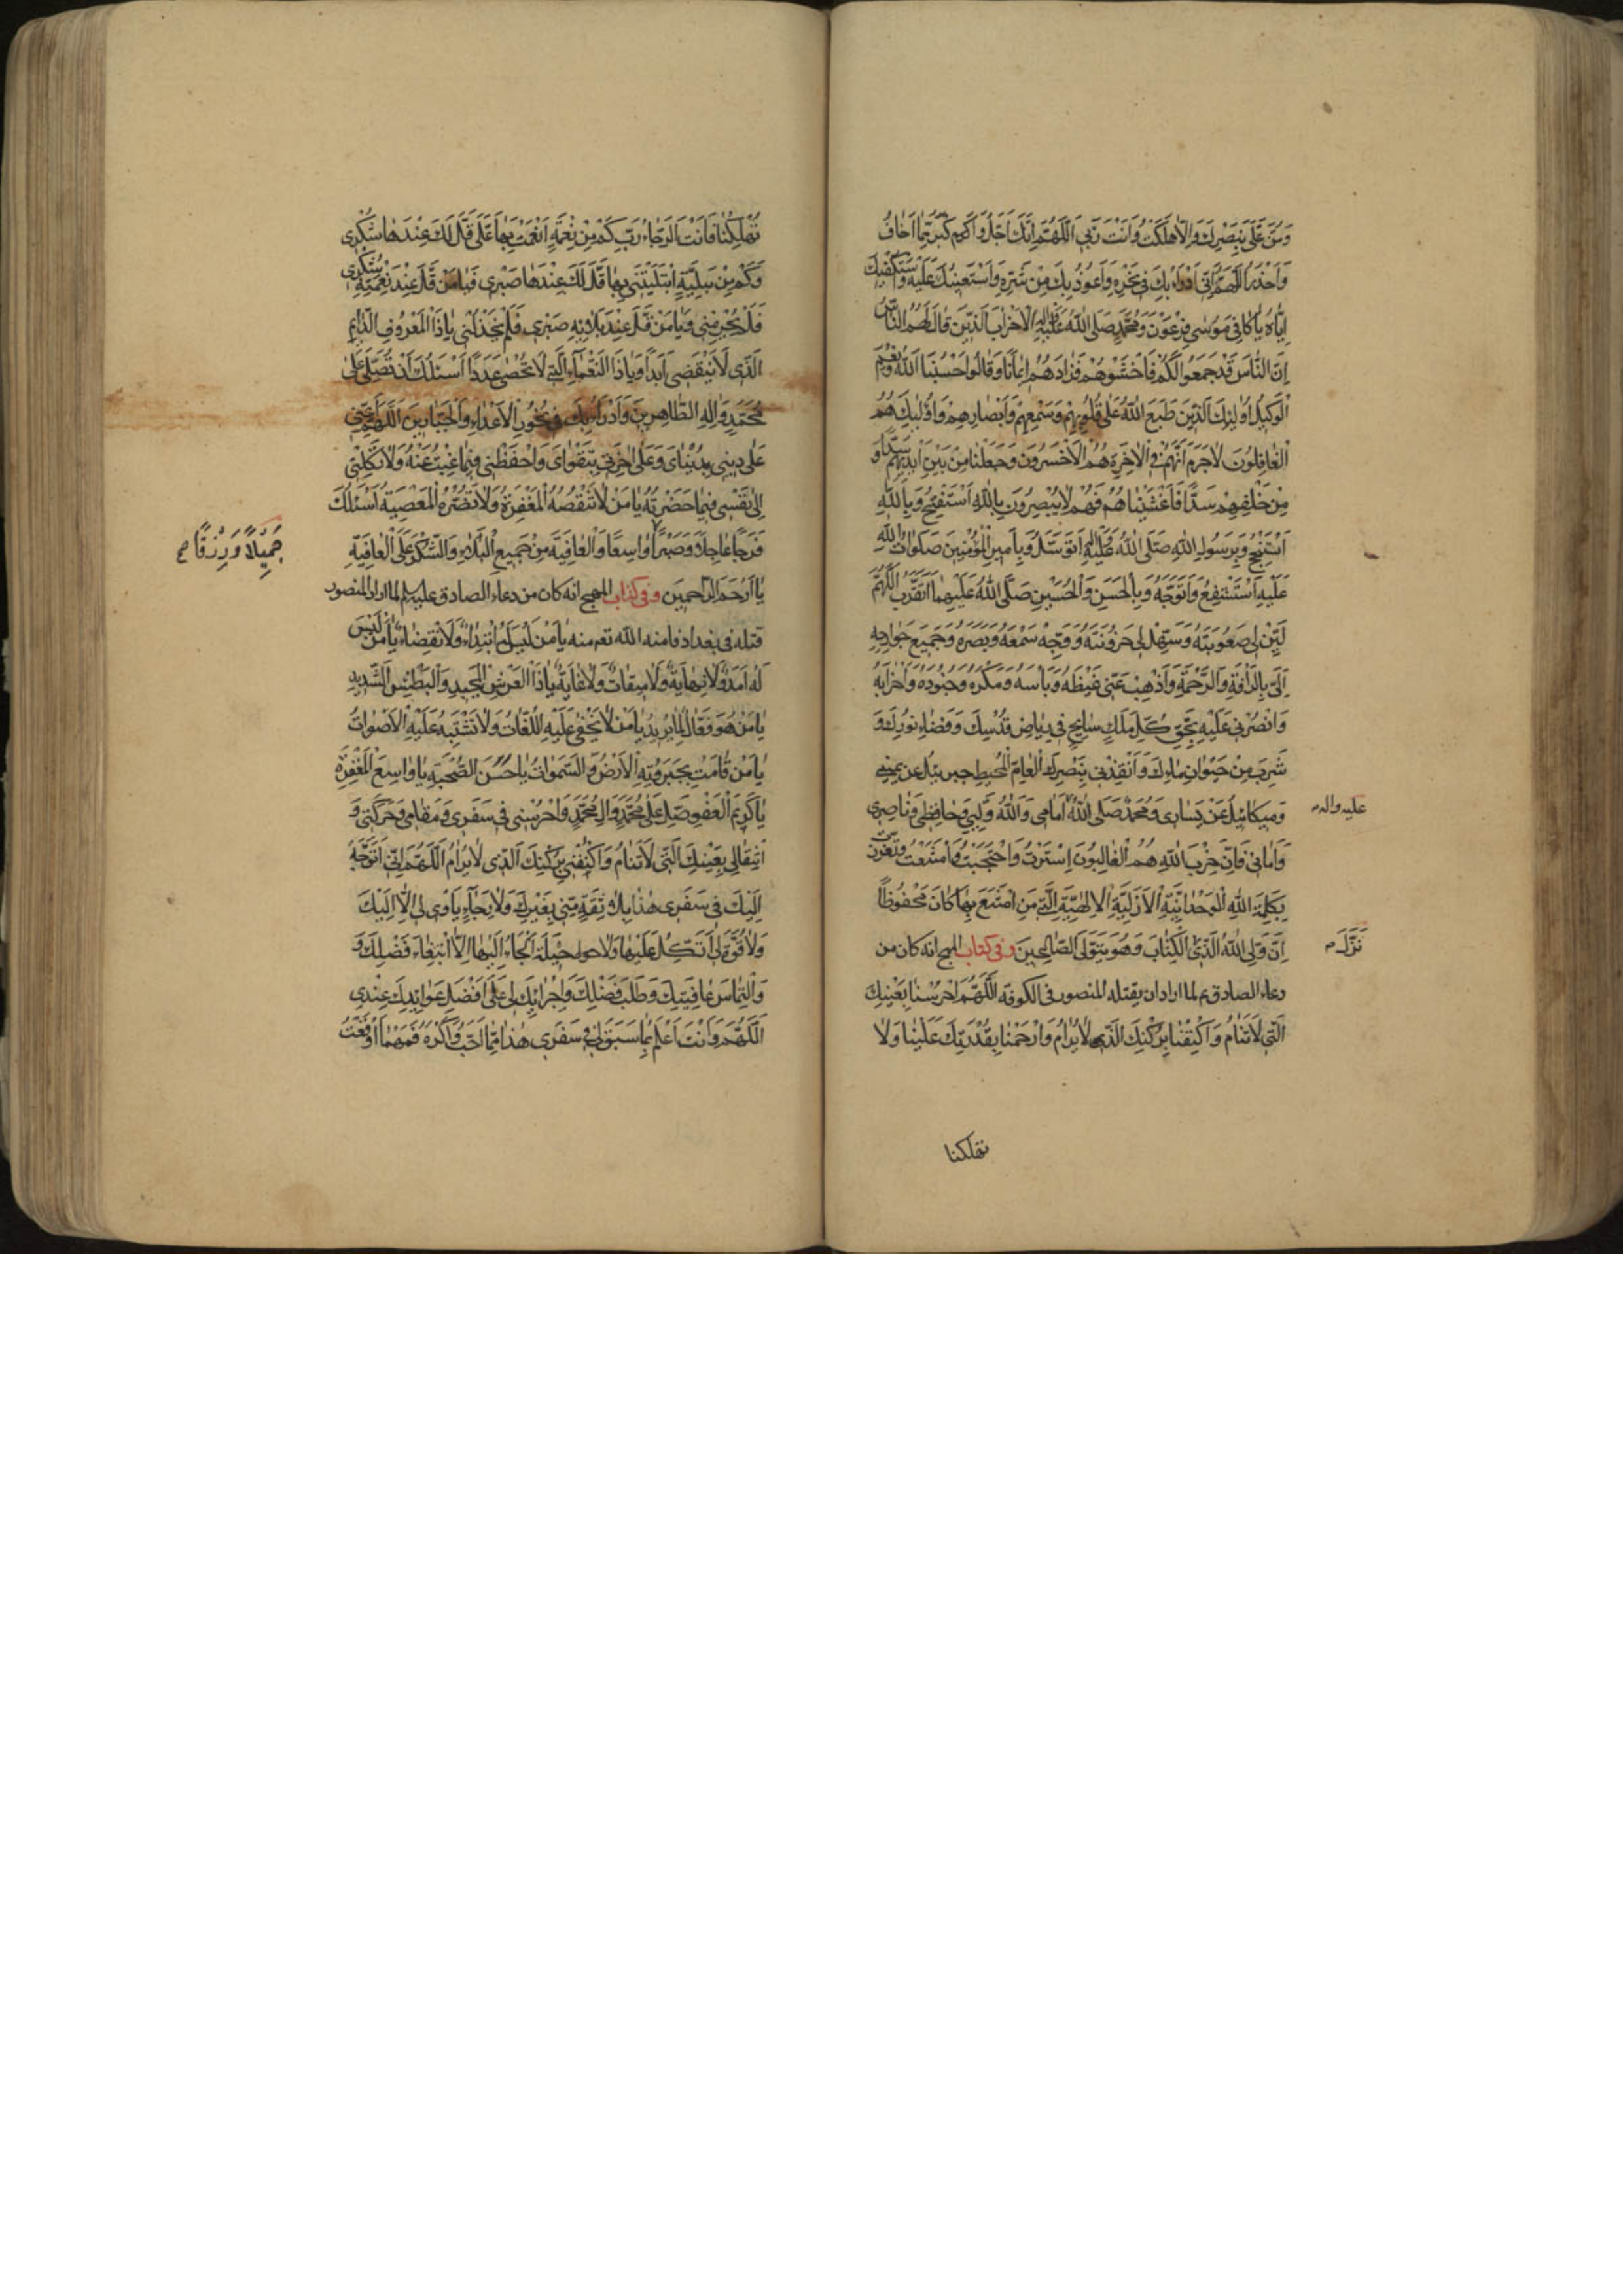 وَمُنَّ عَلَيَّ بِنَصْرِكَ وَاِلّا هَلَكْتُ وَاَنْتَ رَبّي اَللّهُمَّ اِنَّكَ اَجَلُّ وَاَكْبَرُ مِمّا اَخافُ
وَاَحْذَرُ اَللّهُمَّ اِنّي اَدْرَاُ بِكَ في نَحْرِهِ وَاَعُوذُ بِكَ مِنْ شَرِّهِ وَاَسْتَعينُكَ عَلَيْهِ وَاَسْتَكْفيكَ
اِيّاهُ يا كافِيَ مُوسى فِرْعَوْنَ وَمُحَمَّدٍ صَلَّى اللهُ عَلَيْهِ وَالِهِ الْاَحْزابَ الَّذينَ قالَ لَهُمُ النّاسُ
اِنَّ النّاسَ قَدْ جَمَعُوا لَكُمْ فَاخْشَوْهُمْ فَزادَهُمْ ايمانًا وَقالُوا حَسْبُنَا اللهُ وَنِعْمَ
الْوَكيلُ اُولئِكَ الَّذينَ طَبَعَ اللهُ عَلى قُلُوبِهِمْ وَسَمْعِهِمْ وَاَبْصارِهِمْ وَاُولئِكَ هُمُ
الْغافِلُونَ لاجَرَمَ اَنَّهُمْ فِي الْاخِرَةِ هُمُ الْاَخْسَرُونَ وَجَعَلْنا مِنْ بَيْنِ اَيْديهِمْ سَدًّا وَ
مِنْ خَلْفِهِمْ سَدًّا فَاَغْشَيْناهُمْ فَهُمْ لا يُبْصِرُونَ بِاللهِ اَسْتَفْتِحُ وَبِاللهِ
اَسْتَنْجِحُ وَبِرَسُولِ اللهِ صَلَّى اللهُ عَلَيْهِ وَالِهِ اَتَوَسَّلُ وَبِاَميرِ الْمُؤْمِنينَ صَلَواتُ اللهِ
عَلَيْهِ اَسْتَشْفِعُ وَاَتَوَجَّهُ وَبِالْحَسَنِ وَالْحُسَيْنِ صَلَّى اللهُ عَلَيْهِما اَتَقَرَّبُ اَللّهُمَّ
لَيِّنْ لي صُعُوبَتَهُ وَسَهِّلْ لي حُزُونَتَهُ وَوَجِّهْ سَمْعَهُ وَبَصَرَهُ وَجَميعَ جَوارِحِهِ
اِلَيَّ بِالرَّاْفَةِ وَالرَّحْمَةِ وَاَذْهِبْ عَنّي غَيْظَهُ وَبَاْسَهُ وَمَكْرَهُ وَجُنُودَهُ وَاَحْزابَهُ
وَانْصُرْني عَلَيْهِ بِحَقِّ كُلِّ مَلَكٍ سائِحٍ في رِياضِ قُدْسِكَ وَفَضاءِ نُورِكَ وَ
شَرِبَ مِنْ حَيَوانِ مائِكَ وَاَنْقِذْني بِنَصْرِكَ الْعامِّ الْمُحيطِ جبرئيل عن يميني
وَميكائيلُ عَنْ يَساري وَمُحَمَّدٌ صَلَّى اللهُ اَمامي وَاللهُ وَلِيّي وَحافِظي وَناصِري
عليه واله
وَاَماني فَاِنَّ حِزْبَ اللهِ هُمُ الْغالِبُونَ اِسْتَتَرْتُ وَاحْتَجَبْتُ وَامْتَنَعْتُ وَتَعَزَّزْتُ
بِكَلِمَةِ اللهِ الْوَحْدانِيَّةِ الْاَزَلِيَّةِ الْاِلهِيَّةِ الَّتي مَنِ امْتَنَعَ بِها كانَ مَحْفُوظًا
اِنَّ وَلِيِّيَ اللهُ الَّذي الْكِتابَ وَهُوَ يَتَوَلَّى الصّالِحينَ وفي كتاب المهج انه كان من
نَزَّلَ
دعاء الصادق ع لما اراد ان يقتله المنصور في الكوفه اَللّهُمَّ احْرُسْنا بِعَيْنِكَ
الَّتي لا تَنامُ وَاكْنُفْنا بِرُكْنِكَ الَّذي لا يُرامُ وَارْحَمْنا بِقُدْرَتِكَ عَلَيْنا وَلا
تهلكنا
تُهْلِكْنا فَاَنْتَ الرَّجاءُ رَبِّ كَمْ مِنْ نِعْمَةٍ اَنْعَمْتَ بِها عَلَيَّ قَلَّ لَكَ عِنْدَها شُكْري
وَكَمْ مِنْ بَلِيَّةٍ ابْتَلَيْتَني بِها قَلَّ لَكَ عِنْدَها صَبْري فَيا مَنْ قَلَّ عِنْدَ نِعْمَتِهِ شُكْري
فَلَمْ يَحْرِمْني وَيا مَنْ قَلَّ عِنْدَ بَلائِهِ صَبْري فَلَمْ يَخْذُلْني يا ذَا الْمَعْرُوفِ الدّائِمِ
الَّذي لا يَنْقَضي اَبَدًا وَيا ذَا النَّعْماءِ الَّتي لا تُحْصى عَدَدًا اَسْئَلُكَ اَنْ تُصَلِّيَ عَلى
مُحَمَّدٍ وَالِهِ الطّاهِرينَ وَاَدْرَاُ بِكَ في نُحُورِ الْاَعْداءِ وَالْجَبّارينَ اَللّهُمَّ اَعِنّي
عَلى ديني بِدُنْيايَ وَعَلى اخِرَتي بِتَقْوايَ وَاحْفَظْني فيما غِبْتُ عَنْهُ وَلا تَكِلْني
اِلى نَفْسي فيما حَضَرْتُهُ يا مَنْ لا تَنْقُصُهُ الْمَغْفِرَةُ وَلا تَضُرُّهُ الْمَعْصِيَةُ اَسْئَلُكَ
فَرَجًا عاجِلًا وَصَبْرًا واسِعًا وَالْعافِيَةَ مِنْ جَميعِ الْبَلاءِ وَالشُّكْرَ عَلَى الْعافِيَةِ
جَميلًا وَرِزْقًا
يا اَرْحَمَ الرّاحِمينَ وفي كتاب المهج انه كان من دعاء الصادق عليه السلم لما اراد المنصور
قتله في بغداد فامنه الله تعم منه يا مَنْ لَيْسَ لَهُ ابْتِداءٌ وَلَا انْقِضاءٌ يا مَنْ لَيْسَ
لَهُ اَمَدٌ وَلا نِهايَةٌ وَلا ميقاتٌ وَلا غايَةٌ يا ذَا الْعَرْشِ الْمَجيدِ وَالْبَطْشِ الشَّديدِ
يا مَنْ هُوَ فَعّالٌ لِما يُريدُ يا مَنْ لا يَخْفى عَلَيْهِ اللُّغاتُ وَلا تَشْتَبِهُ عَلَيْهِ الْاَصْواتُ
يا مَنْ قامَتْ بِجَبَرُوتِهِ الْاَرْضُ وَالسَّمواتُ يا حَسَنَ الصُّحْبَةِ يا واسِعَ الْمَغْفِرَةِ
يا كَريمَ الْعَفْوِ صَلِّ عَلى مُحَمَّدٍ وَالِ مُحَمَّدٍ وَاحْرُسْني في سَفَري وَمَقامي وَحَرَكَتي وَ
انْتِقالي بِعَيْنِكَ الَّتي لا تَنامُ وَاكْنُفْني بِرُكْنِكَ الَّذي لا يُرامُ اَللّهُمَّ اِنّي اَتَوَجَّهُ
اِلَيْكَ في سَفَري هذا بِلا ثِقَةٍ مِنّي بِغَيْرِكَ وَلا رَجاءٍ يَاْوي لي اِلّا اِلَيْكَ
وَلا قُوَّةَ لي اَتَّكِلُ عَلَيْها وَلا حيلَةَ اَلْجَاُ اِلَيْها اِلَّا ابْتِغاءَ فَضْلِكَ وَ
وَالْتِماسَ عافِيَتِكَ وَطَلَبَ فَضْلِكَ وَاِجْرائِكَ لي عَلى اَفْضَلِ عَوائِدِكَ عِنْدي
اَللّهُمَّ وَاَنْتَ اَعْلَمُ بِما سَبَقَ لي في سَفَري هذا مِمّا اُحِبُّ وَاَكْرَهُ فَمَهْما اَوْقَعْتَ